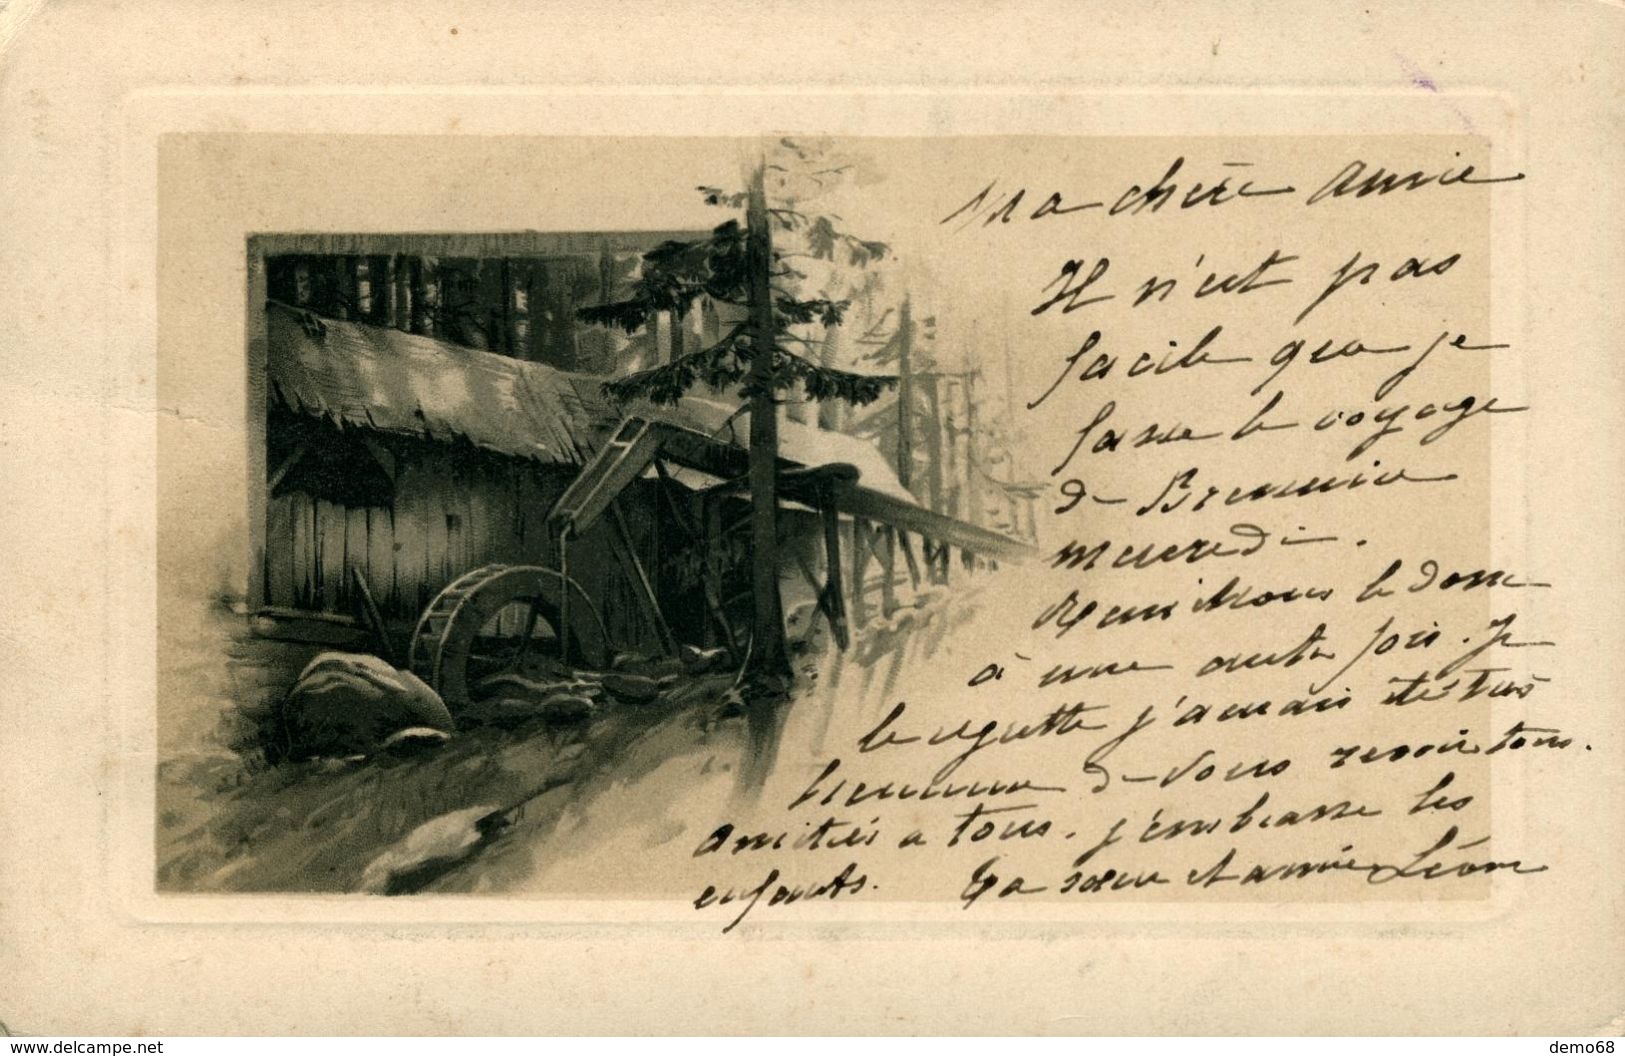 Ma chère Amie
Il n'est pas
facile que je
fasse le voyage
de
mercredi.
Remettons le donc
à une autre fois. Je
le regrette j'aurais été très
heureuse de vous revoir tous.
Amitiés a tous. j'embrasse les
enfants. Ta sœur et amie Léonie
www.delcampe.net
demo68